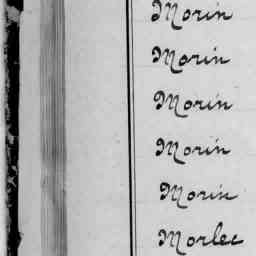 Morin
Morin
Morin
Morin
Morin
Morlec